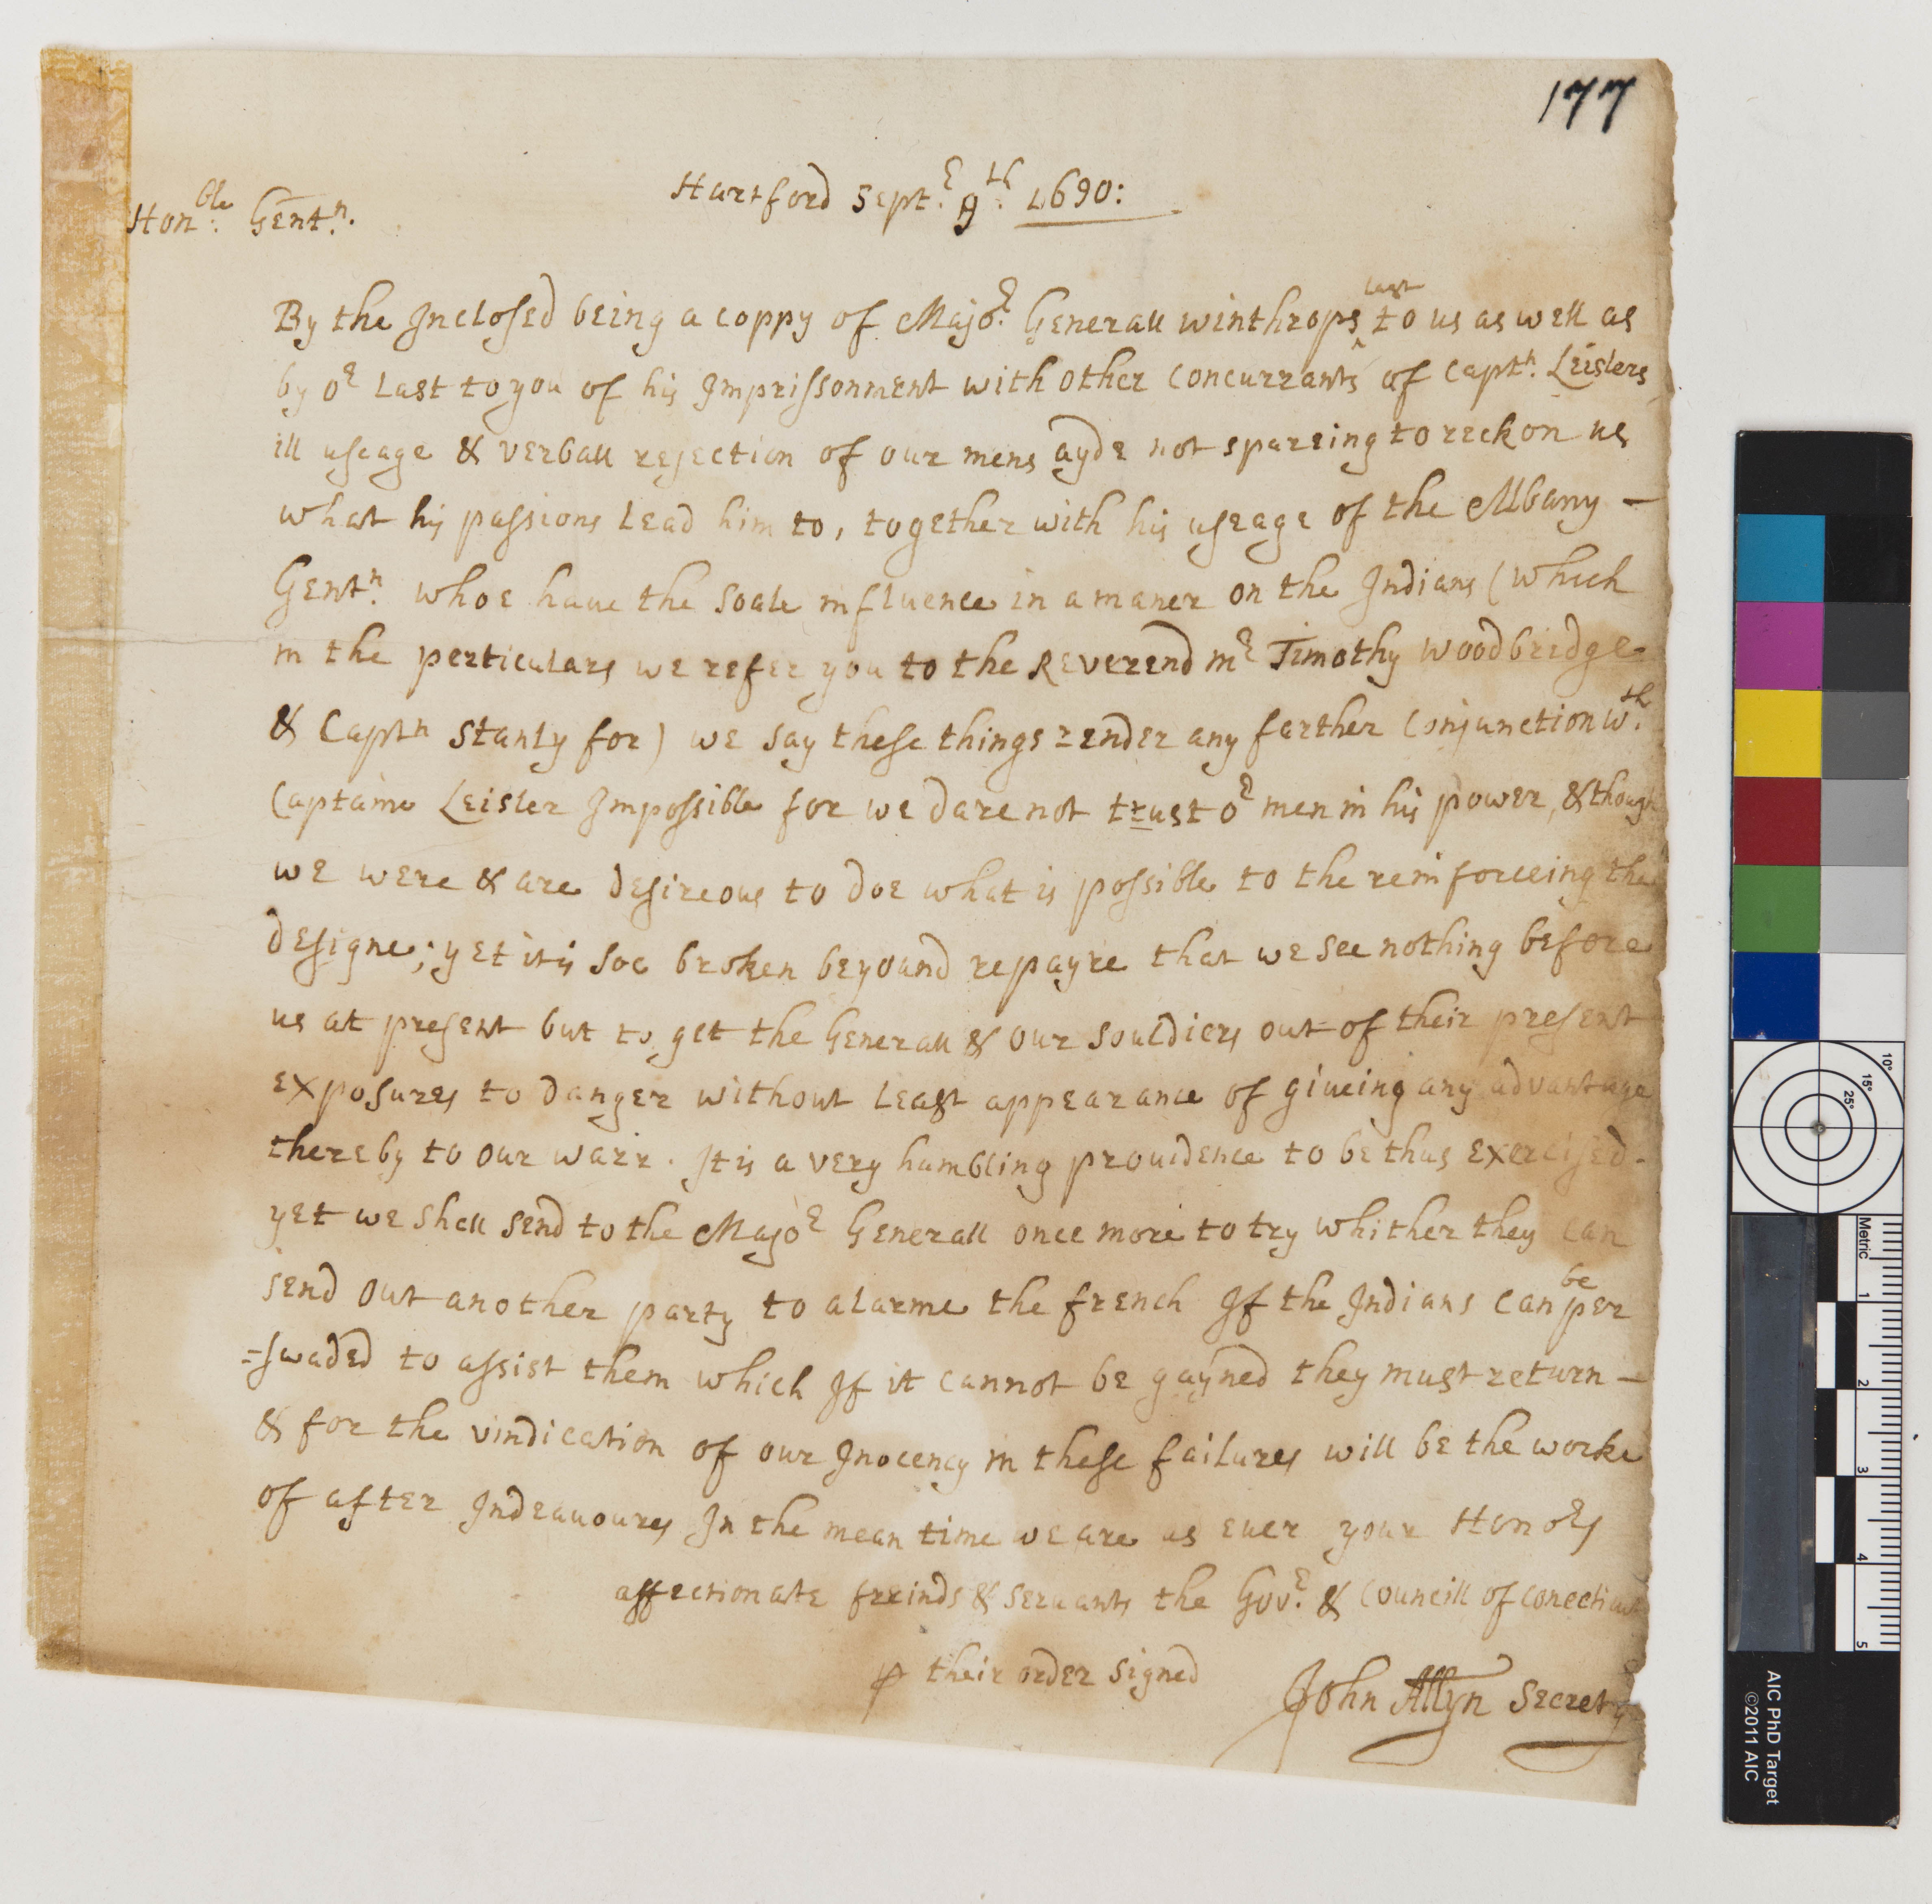 177
Hartford Septr. 9th: 1690:
Honble: Gentn.
By the Inclosed being a coppy of Major. Generall winthrops last to us as well as
by or Last to you of his Imprissonment with other concurrants of captn. Leislers
ill useage & verball rejection of our mens ayde not spareing to reckon us
what his passions Lead him to, together with his useage of the Albany -
Gentn. whoe haue the soale influence in a maner on the Indians (which
in the perticulars we refer you to the Reverend mr Timothy woodbridge
& Captn Stanly for) we say these things render any farther conjunction wth.
Captaine Leisler Impossible for we dare not trust or men in his power, & though
we were & are desireous to doe what is possible to the reinforceing the
designe; yet it is soe broken beyound repayre that we see nothing before
us at present but to get the Generall & our souldiers out of their present
exposures to danger without Least appearance of giueing any advantage
thereby to our warr. It is a very humbling prouidence to be thus exercised.
yet we shall send to the Major Generall once more to try whither they can
send out another party to alarme the french If the Indians can be per
=swaded to assist them which If it cannot be gayned they must return -
& for the vindication of our Inocency in these failures will be the worke
of after Indeauoures In the mean time we are as euer your Honors
affectionate freinds & seruants the Govr. & Councill of conecticut
p their order signed
John Allyn Secrety
Metric
1
2
3
4
5
10°
15°
25°
AIC PhD Target
©2011 AIC